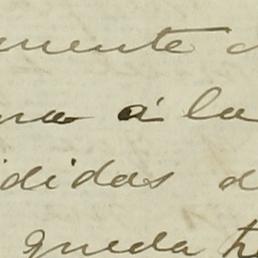 mente
na á la
didas d
queda